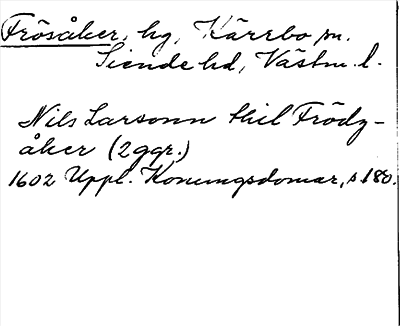 Frösåker, hg, Kärrbo sn.
Siende hd, Västm. l.
Nils Larsonn thil Frödz-
åker (2 ggr.)
1602 Uppl. Konungsdomar, s 180.